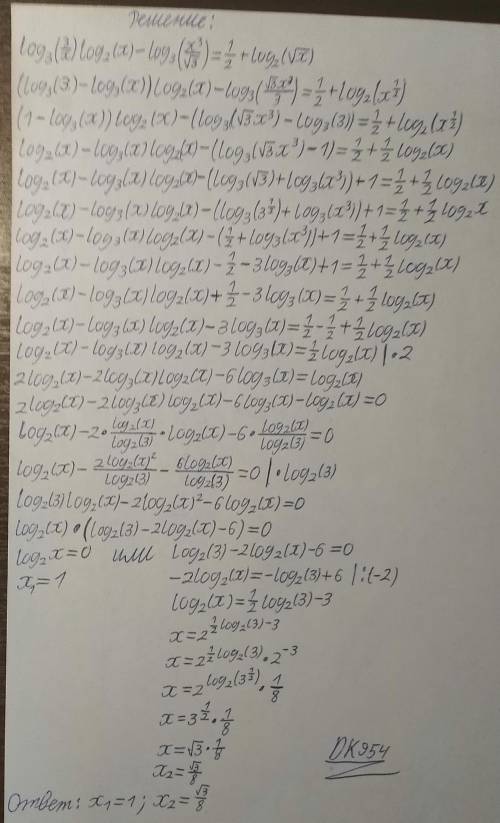 Решение:
log₃(3/x)log₂(x)-log₃(x³/√3)=1/2+log₂(√x)
(log₃(3)-log₃(x))log₂(x)-log₃(√3x³/3)=1/2+log₂(x^(1/2))
(1-log₃(x))log₂(x)-(log₃(√3x³)-log₃(3))=1/2+log₂(x^(1/2))
log₂(x)-log₃(x)log₂(x)-(log₃(√3x³)-1)=1/2+1/2log₂(x)
log₂(x)-log₃(x)log₂(x)-(log₃(√3)+log₃(x³))+1=1/2+1/2log₂(x)
log₂(x)-log₃(x)log₂(x)-(log₃(3^(1/2))+log₃(x³))+1=1/2+1/2log₂x
log₂(x)-log₃(x)log₂(x)-(1/2+log₃(x³))+1=1/2+1/2log₂(x)
log₂(x)-log₃(x)log₂(x)-1/2-3log₃(x)+1=1/2+1/2log₂(x)
log₂(x)-log₃(x)log₂(x)+1/2-3log₃(x)=1/2+1/2log₂(x)
log₂(x)-log₃(x)log₂(x)-3log₃(x)=1/2-1/2+1/2log₂(x)
log₂(x)-log₃(x)log₂(x)-3log₃(x)=1/2log₂(x)|·2
2log₂(x)-2log₃(x)log₂(x)-6log₃(x)=log₂(x)
2log₂(x)-2log₃(x)log₂(x)-6log₃(x)-log₂(x)=0
log₂(x)-2·log₂(x)/log₂(3)·log₂(x)-6·log₂(x)/log₂(3)=0
log₂(x)-2log₂(x)²/log₂(3)-6log₂(x)/log₂(3)=0|·log₂(3)
log₂(3)log₂(x)-2log₂(x)²-6log₂(x)=0
log₂(x)·(log₂(3)-2log₂(x)-6)=0
log₂x=0 или log₂(3)-2log₂(x)-6=0
x₁=1 -2log₂(x)=-log₂(3)+6|:(-2)
log₂(x)=1/2log₂(3)-3
x=2^(1/2log₂(3)-3)
x=2^(1/2log₂(3))·2⁻³
x=2^(log₂(3^(1/2)))·1/8
x=3^(1/2)·1/8
x=√3·1/8
x₂=√3/8
DK954
Ответ: x₁=1; x₂=√3/8